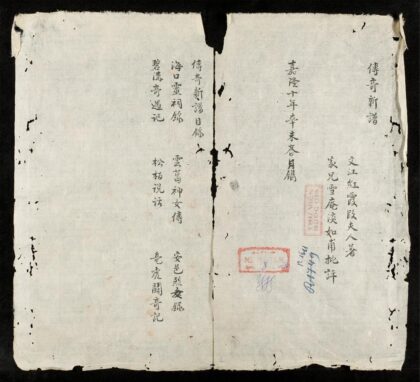 傳奇新譜
文江紅霞段夫人著
家兄雪庵淡如甫批評
嘉隆十年辛未月鐫
傳奇新譜目錄
海口靈祠錄 雲葛神女傳 安邑烈女錄
碧溝奇遇記 松柏說話 竜虎鬪奇記